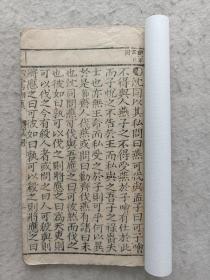 沈同以其私問曰燕可伐與孟子曰可子噲
不得與人燕子之不得受燕於子噲有仕於此
而子悅之不告於王而私與之吾子之祿爵夫
士也亦無王命而私受之於子則可乎何以異
於是齊人伐燕或問曰勸齊伐燕有諸曰未
也沈同問燕可伐與吾應之曰可彼然而伐之
也彼如曰孰可以伐之則將應之曰為天吏則
可以伐之今有殺人者或問之曰人可殺與則
將應之曰可彼如曰孰可以殺之則將應之曰